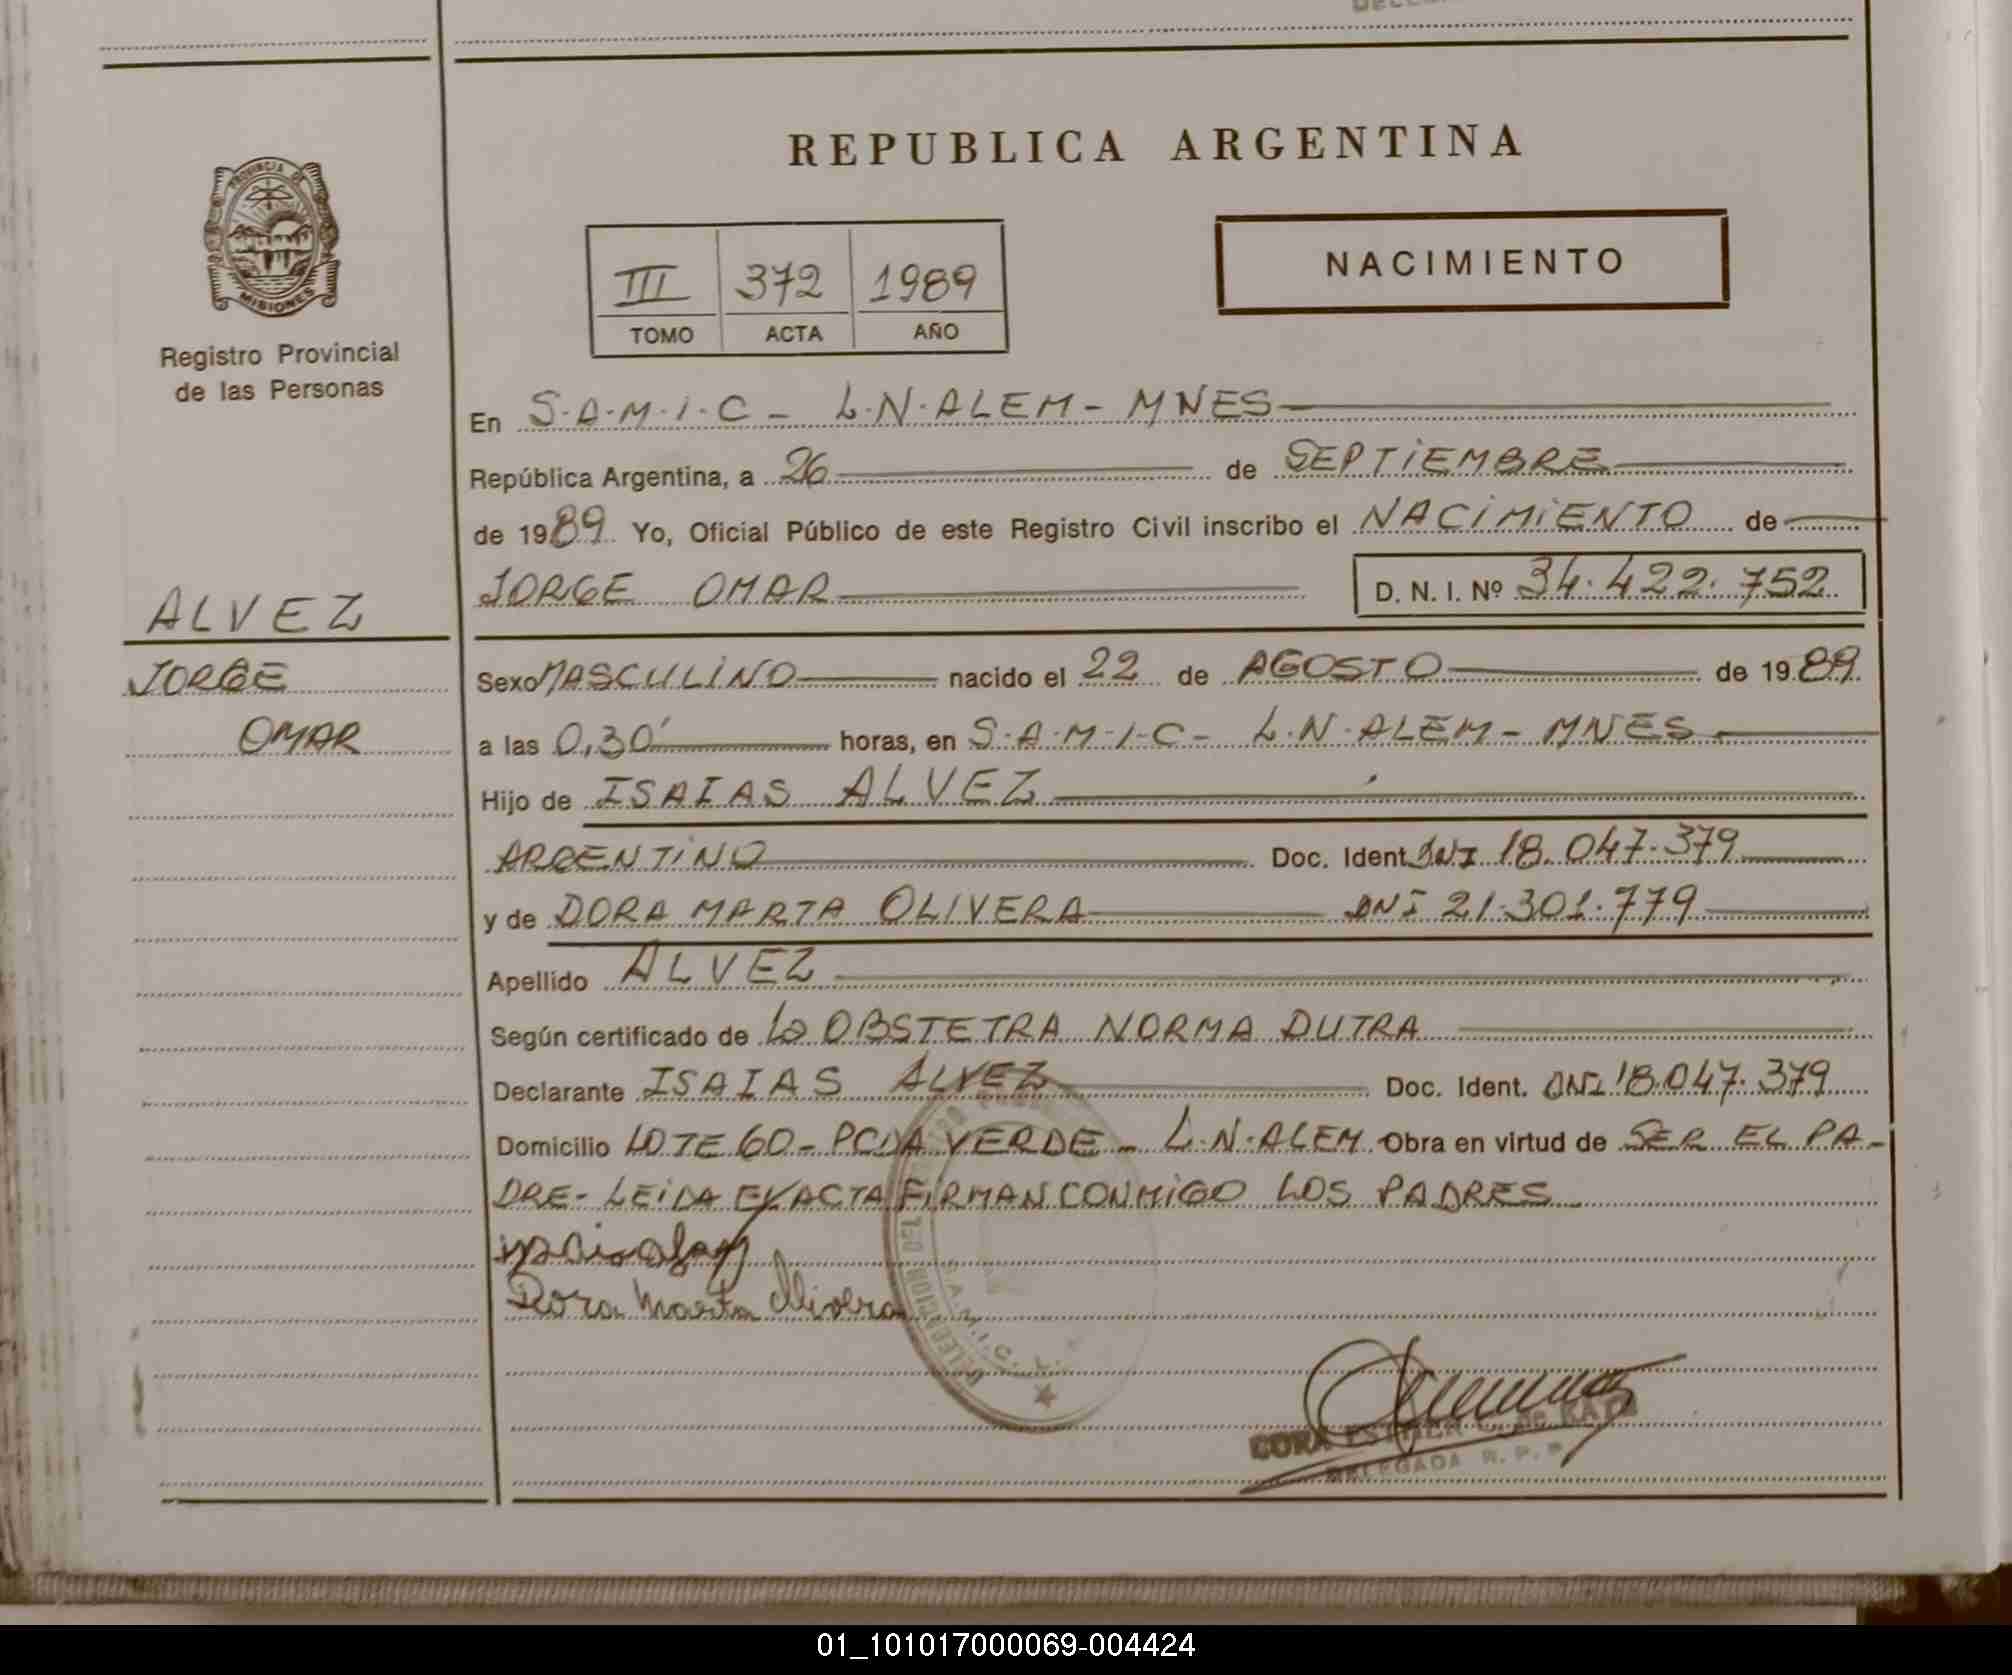 REPUBLICA ARGENTINA
PROVINCIA DE
MISIONES
Registro Provincial
de las Personas
III 372 1989
TOMO ACTA AÑO
NACIMIENTO
En S.A.M.I.C - L.N.ALEM - MNES
República Argentina, a 26 de SEPTIEMBRE
de 1989 Yo, Oficial Público de este Registro Civil inscribo el NACIMIENTO de
JORGE OMAR D. N. I. Nº 34.422.752
ALVEZ
JORGE
OMAR
Sexo MASCULINO nacido el 22 de AGOSTO de 1989
a las 0,30' horas, en S.A.M.I.C - L.N.ALEM - MNES
Hijo de ISAIAS ALVEZ
ARGENTINO Doc. Ident DNI 18.047.379
y de DORA MARTA OLIVERA DNI 21.301.779
Apellido ALVEZ
Según certificado de La OBSTETRA NORMA DUTRA
Declarante ISAIAS ALVEZ Doc. Ident. DNI 18.047.379
Domicilio LOTE 60 - PCDA VERDE - L.N.ALEM Obra en virtud de SER EL PA-
DRE - LEIDA EXACTA FIRMAN CONMIGO LOS PADRES
Dora Marta Olivera
DELEGACION DEL
S.A.M.I.C. L.
ESTHER
DELEGADA R. P. P.
01_101017000069-004424